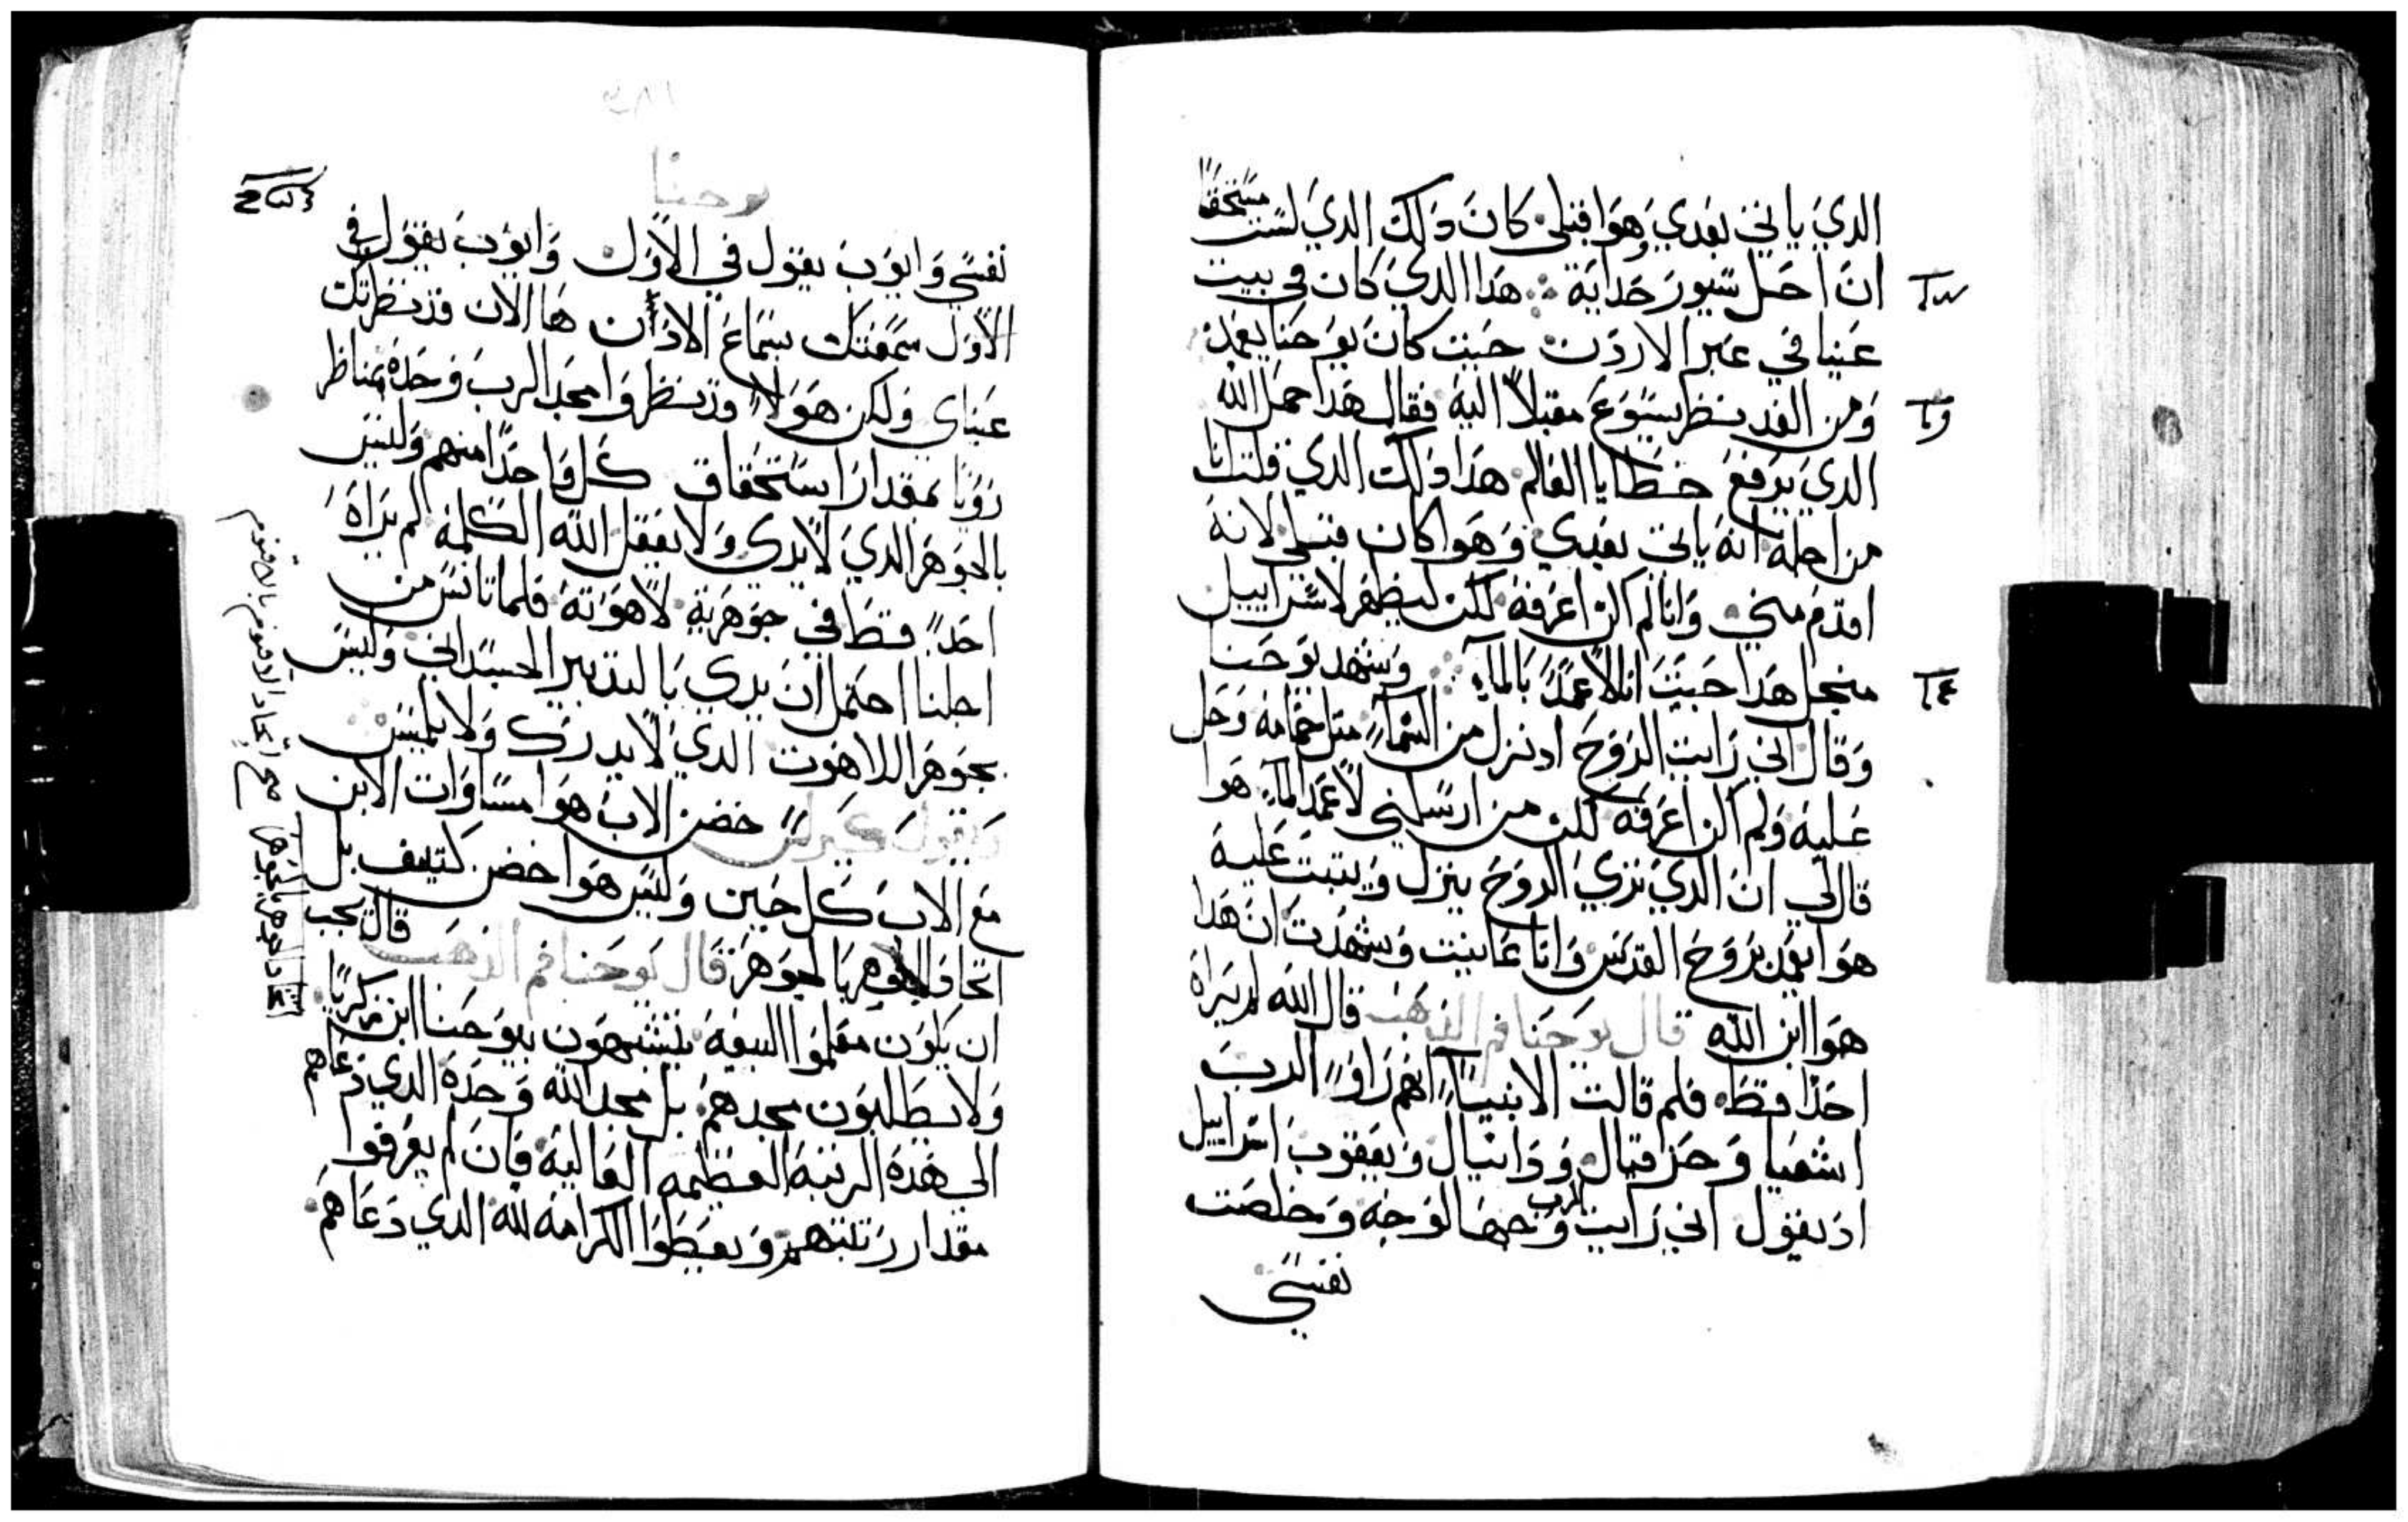 الدي ياتي بعدي وهوا قبلي كان دلك الدي لست مستحقا
ان احل سيور حدايه هدا الدي كان في بيت
عنيا في عبر الاردن حيت كان يوحنا يعمد
ومن الغد نظر يسوع مقبلا اليه فقال هدا حمل الله
الدي يرفع خطايا العالم هدا دلك الدي قلت انا
من اجله انه ياتي بعدي وهوا كان قبلي لانه
اقدم مني وانا لم اكن اعرفه لكن ليظهر لاسراييل
منجل هدا حييت انا لاعمد بالماء وشهد يوحنا
وقال اني رايت الروح اد نزل من السماء متل حمامه وحل
عليه ولم اكن اعرفه لكن من ارسلني لاعمد بالماء هوا
قال لي ان الدي تري الروح ينزل ويتبت عليه
هوا يعمد بروح القدس وانا عاينت وشهدت ان هدا
هوا ابن الله قال يوحنا فم الدهب قال الله لم يراه
احدا قط فلم قالت الانبياء انهم راوا الرب
اشعيا وحزاقيال ودانيال ويعقوب اسراييل
اد يقول اني رايت الرب وجها لوجه وخلصت
نفسي
يوحنا
نفسي وايوب يقول في الاول وايوب يقول في
الاول سمعتك بسماع الادان ها الان قد نظرتك
عيناي ولكن هولا قد نظروا مجد الرب وحده بمناظر
رويا بمقدار استحقاق كل واحدا منهم وليس
بالجوهر الدي لا يري ولا يعقل الله الكلمه لم يراه
احد قط في جوهرية لاهوته فلما تانس من
اجلنا احتمل ان يري بالتدبير الجسداني وليس
بجوهر اللاهوت الدي لا يدرك ولا يلمس
ويقول كيرلس حضن الاب هوا مساوات الابن
مع الاب كل حين وليس هوا حضن كتيف بل
اتحاد الجوهر بالجوهر قال يوحنا فم الدهب قال يجب
ان يكون معلموا البيعه يتشبهون بيوحنا ابن زكريا
ولا يطلبون مجدهم بل مجد الله وحده الدي دعاهم
الي هده الرتبه العظيمه العاليه فان لم يعرفوا
مقدار رتبتهم ويعطوا الكرامه لله الدي دعاهم
اتحاد الجوهر بالجوهر مع اتحاد الاقنوم بالاقنوم